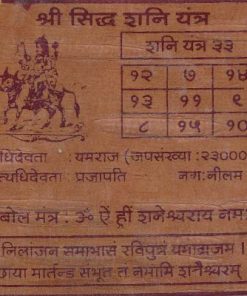 श्री सिद्ध शनि यंत्र
शनि यंत्र ३३
१२ ७ १४
१३ ११ ९
८ १५ १०
धिदेवता : यमराज (जपसंख्या : २३०००
त्यधिदेवता : प्रजापति नग: नीलम
बोल मंत्र : ॐ ऐं ह्रीं शनेश्वराय नम
निलांजन समाभासं रविपुत्रं यमाग्रजम ।
छाया मार्तन्ड संभूत त नमामि शनैश्चरम्